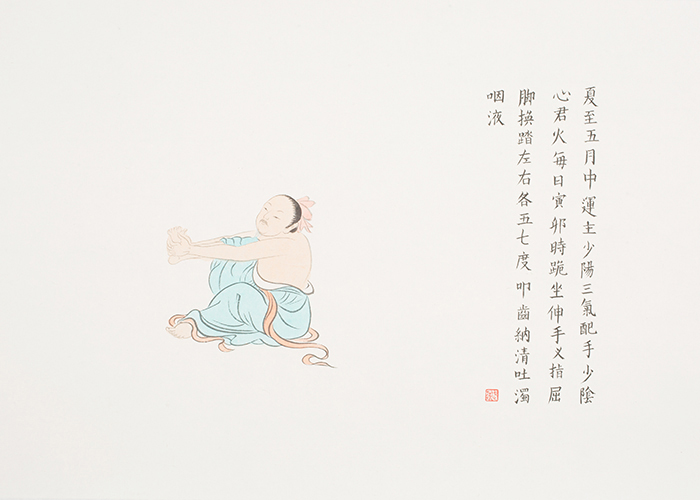 夏至五月中運主少陽三氣配手少陰
心君火每日寅卯時跪坐伸手义指屈
脚换踏左右各五七度叩齒納清吐濁
咽液